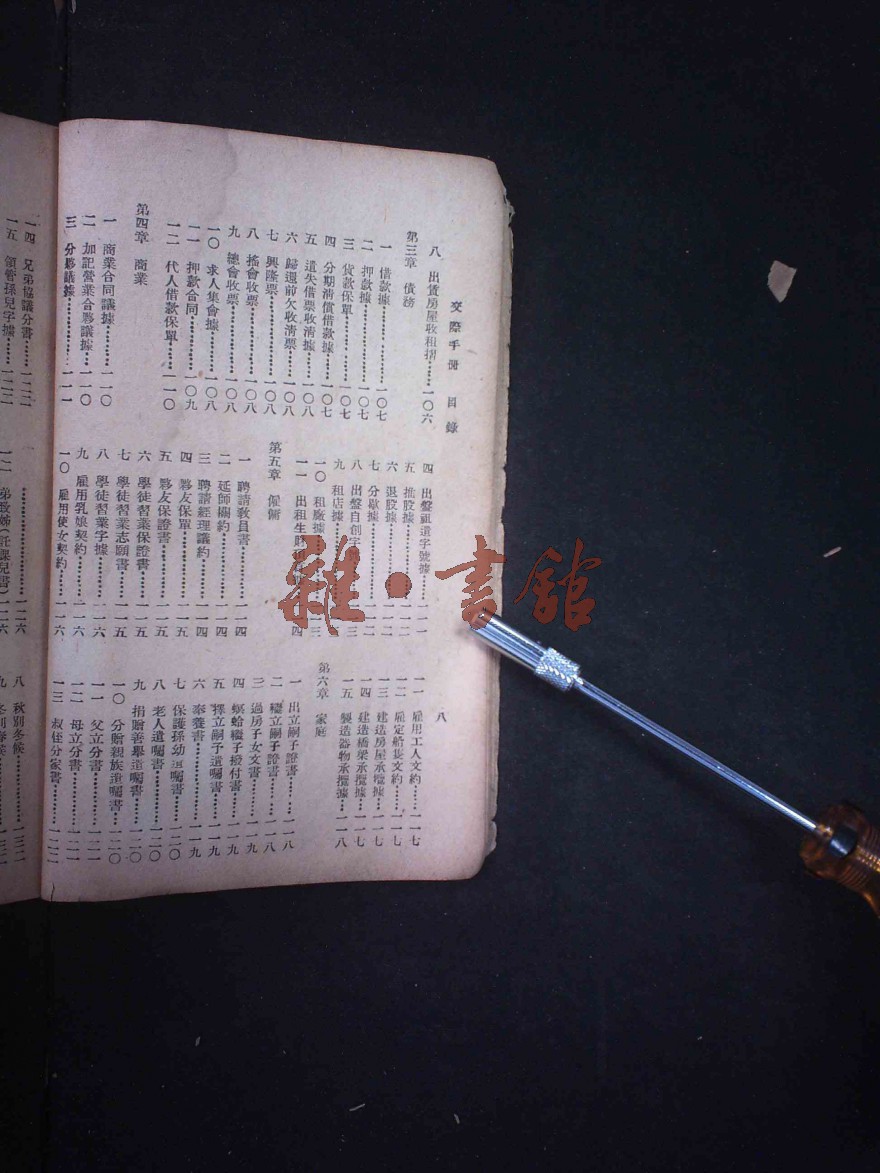 交際手冊 目錄
八
八 出賃房屋收租摺……一〇六
第三章 債務
一 借款據……一〇七
二 押款據……一〇七
三 貨款保單……一〇七
四 分期清償借款據……一〇七
五 遺失借票收清據……一〇八
六 歸還前欠收清票……一〇八
七 興隆票……一〇八
八 搖會收票……一〇八
九 總會收票……一〇八
一〇 求人集會據……一〇八
一一 押款合同……一〇九
一二 代人借款保單……一一〇
第四章 商業
一 商業合同議據……一一〇
二 加記營業合夥議據……一一〇
三 分夥議據……一一一
四 出盤祖遺字號據……一一一
五 推股據……一一二
六 退股據……一一二
七 分歇據……一一二
八 出盤自創字
九 租店據
一〇 租廠據
一一 出租生財
第五章 傭僱
一 聘請教員書……一一四
二 延師關約……一一四
三 聘請經理議約……一一四
四 夥友保單……一一五
五 夥友保證書……一一五
六 學徒習業保證書……一一五
七 學徒習業志願書……一一五
八 學徒習業字據……一一六
九 雇用乳娘契約……一一六
一〇 雇用使女契約……一一六
一一 雇用工人文約……一一七
一二 雇定船隻文約……一一七
一三 建造房屋承攬據……一一七
一四 建造橋梁承攬據……一一七
一五 製造器物承攬據……一一八
第六章 家庭
一 出立嗣子證書……一一八
二 繼立嗣子證書……一一八
三 過房子女文書……一一九
四 螟蛉繼子撥付書……一一九
五 擇立嗣子遺囑書……一一九
六 奉養書……一一九
七 保護孫幼遺囑書……一二〇
八 老人遺囑書……一二〇
九 捐贈善舉遺囑書……一二〇
一〇 分贈親族遺囑書……一二〇
一一 父立分書……一二一
一二 母立分書……一二一
一三 叔侄分家書……一二二
一四 兄弟協議分書……一二二
一五 領管孫兒字據……一二二
……一二六
一二 弟致姊（託課兒書）一二六
八 秋別冬候……一三二
九 冬別春候……一三二
雜·書館